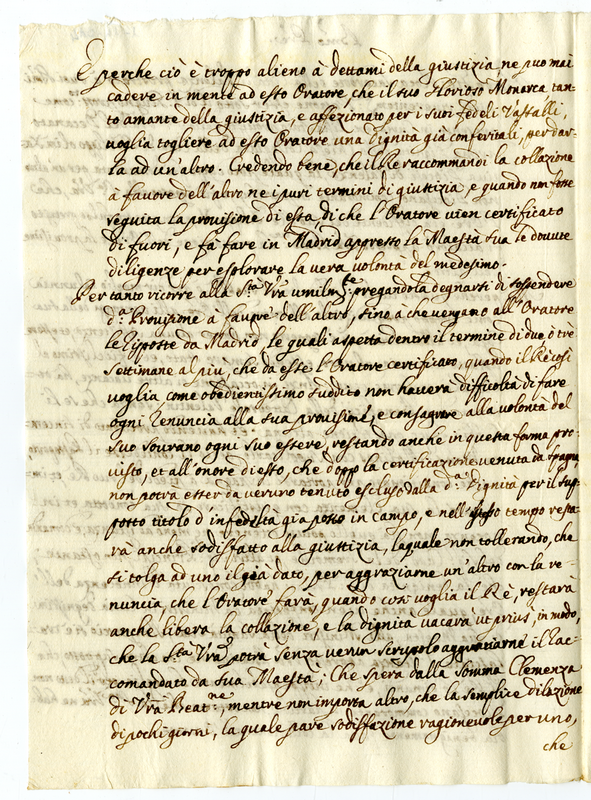 E perche ciò è troppo alieno à dettami della giustizia ne puo mai
cadere in mente ad esto Oratore, che il suo Glorioso Monarca tan-
to amante della giustizia, e affezionato per i suoi fedeli Vassalli,
voglia togliere ad esto Oratore una dignità già conferitali, per dar-
la ad un'altro. Credendo bene, che il Re raccommandi la collazione
à favore dell'altro ne i puri termini di giustizia, e quando non fosse
seguita la provisione di esta, di che l'Oratore vien certificato
di fuori, e fà fare in Madrid appresso la Maestà sua le dovute
diligenze per esplorare la vera volontà del medesimo.
Per tanto ricorre alla S.ta Vra umilm.te pregandola degnarsi di sospendere
d.a Provisione à favore dell'altro, sino a che vengano all'Oratore
le Risposte da Madrid, le quali aspetta dentro il termine di due, ò tre
settimane al più, che da esse l'Oratore certificato, quando il Rè così
voglia come obedientissimo suddito non haverà difficoltà di fare
ogni renuncia alla sua provisione, e consagrare alla volontà del
suo sovrano ogni suo essere, restando anche in questa forma pro-
visto, et all'onore di esto, che dopp la certificazione venuta da Spagna,
non potrà esser da veruno tenuto escluso dalla d.a Dignità per il sup-
posto titolo d'infedeltà già posto in campo, e nell'istesso tempo resta-
rà anche sodisfatto alla giustizia, la quale non tollerando, che
si tolga ad uno il già dato, per aggraziarne un'altro con la re-
nuncia, che l'Oratore farà, quando così voglia il Rè, restarà
anche libera la collazione, e la dignità vacarà ut prius, in modo,
che la S.ta Vra potrà senza verun scrupolo aggratiarne il rac-
comandato da sua Maestà; Che spera dalla somma Clemenza
di Vra Beat.ne, mentre non importa altro, che la semplice dilazione
di pochi giorni, la quale pare sodisfazione ragionevole per uno,
che